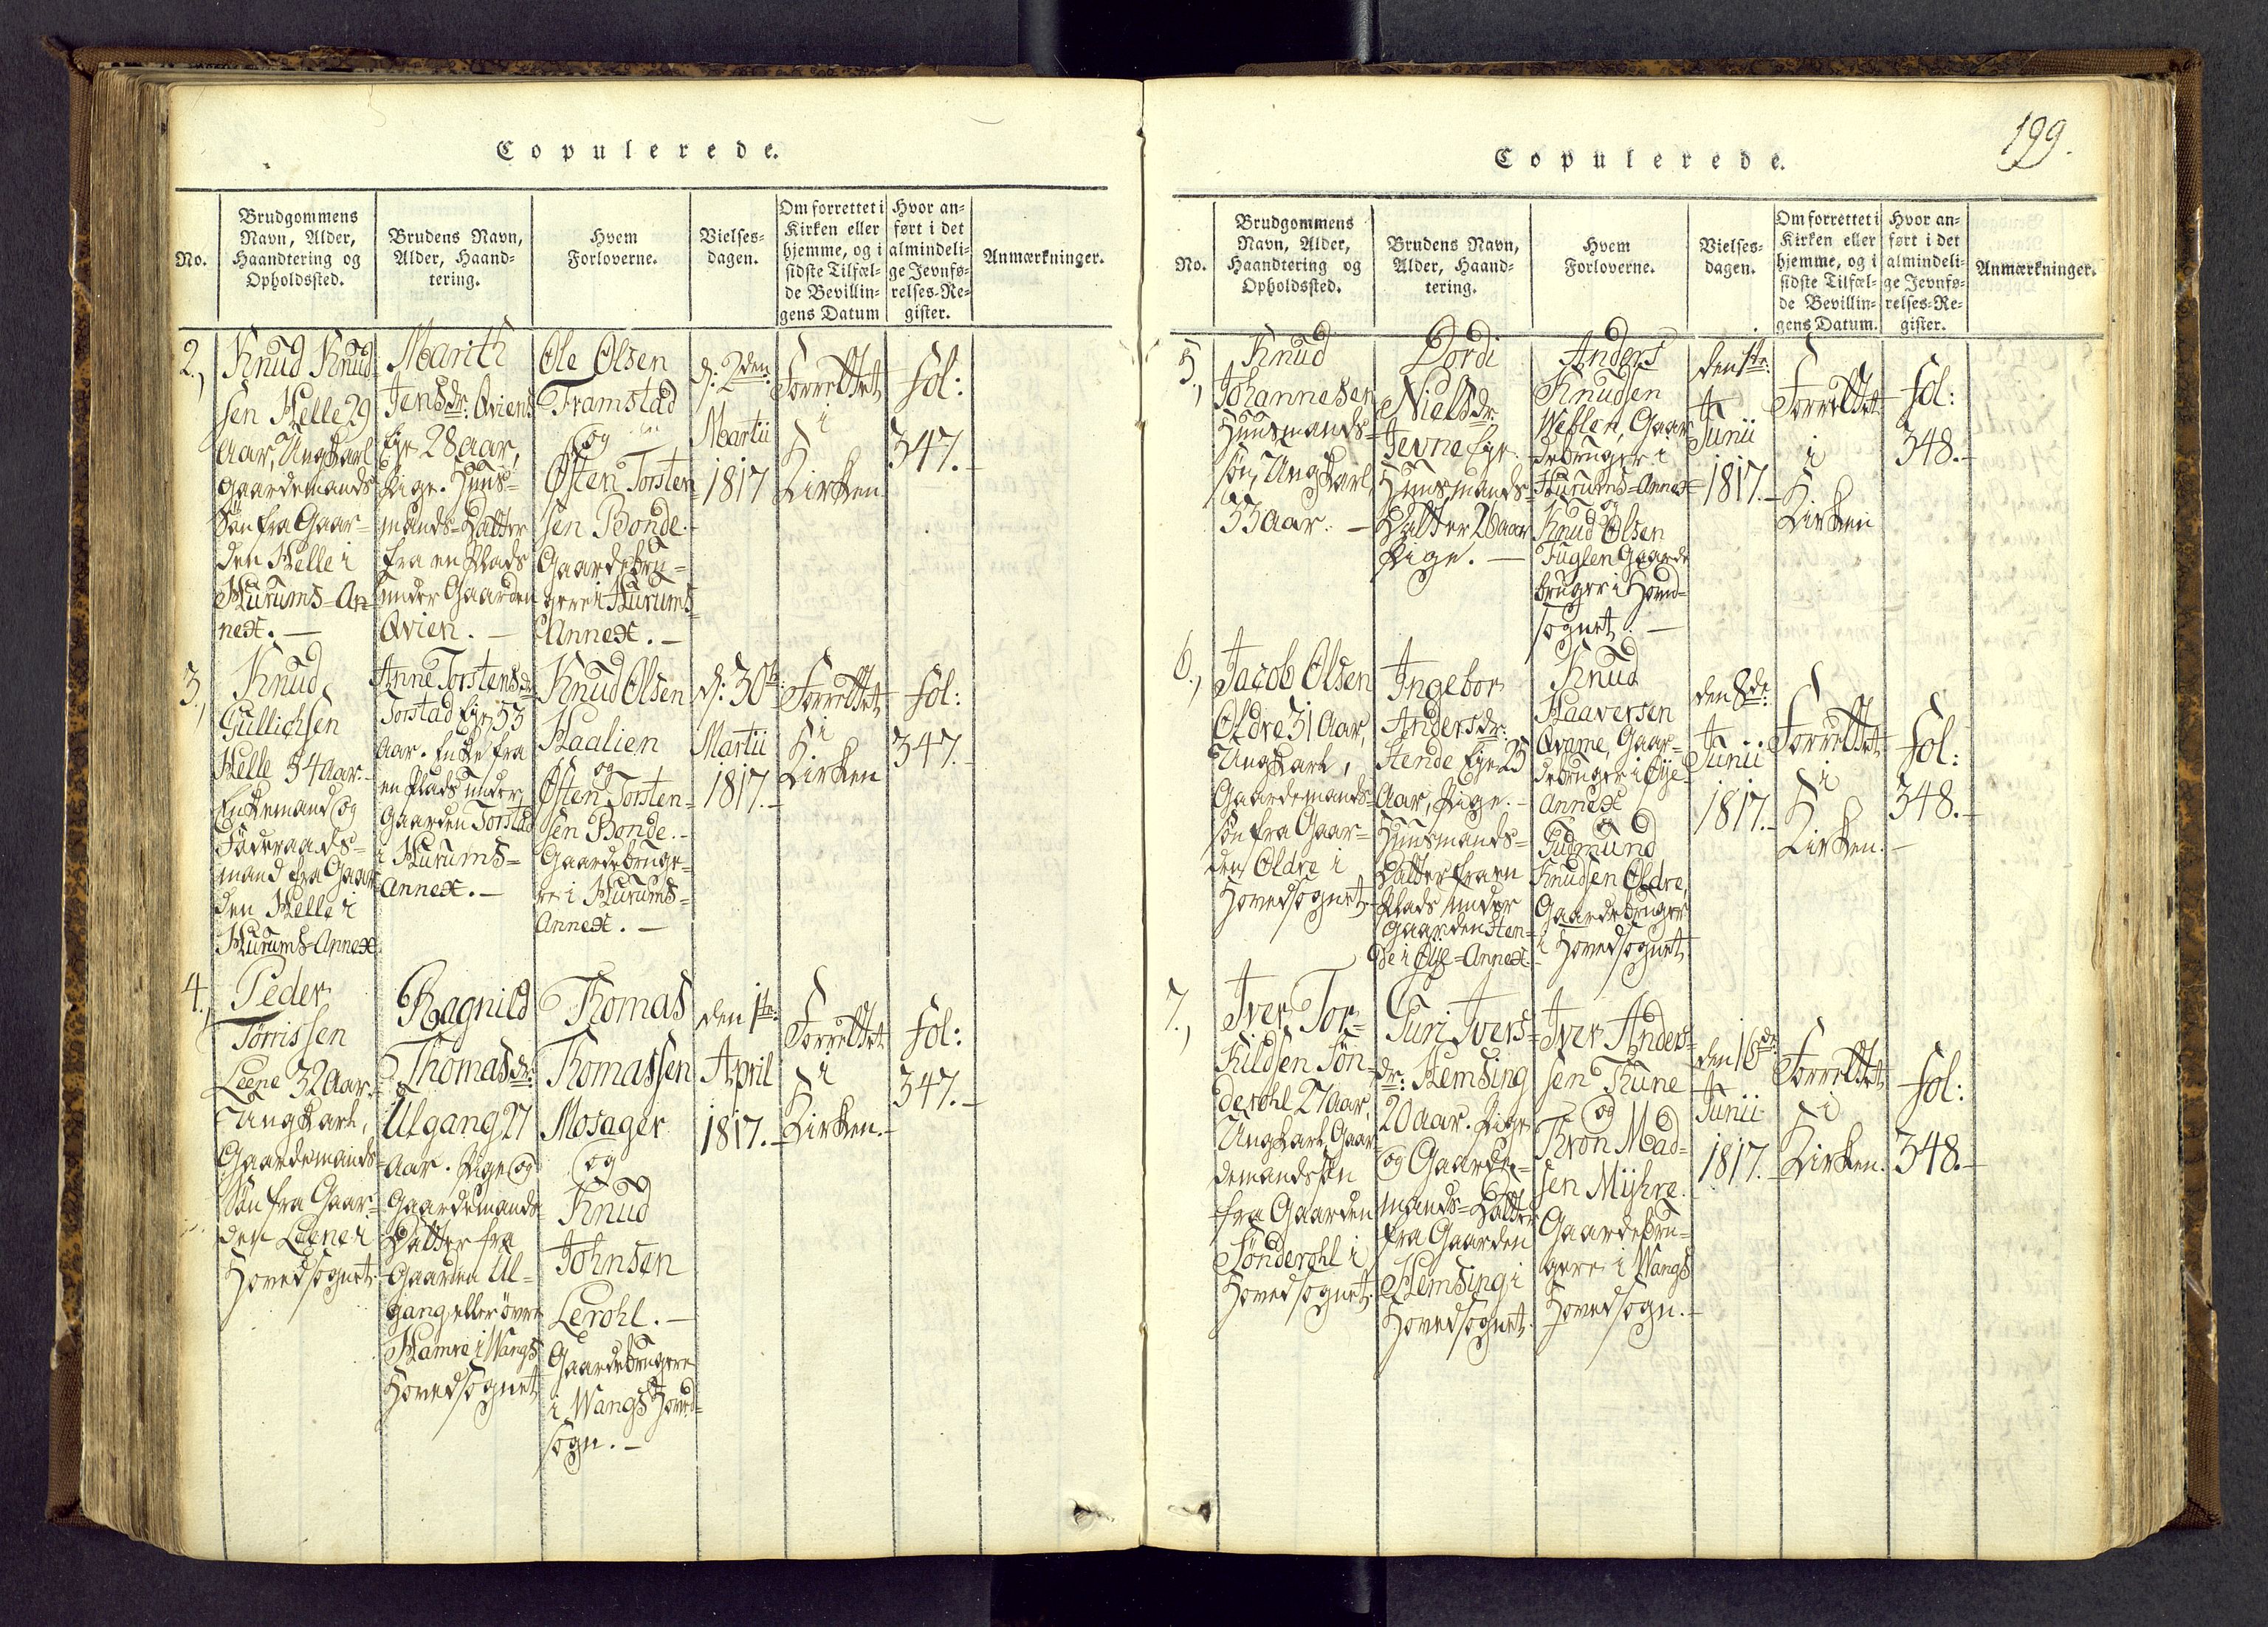 Copulerede.
No.
Brudgommens
Navn, Alder,
Haandtering og
Opholdssted.
Brudens Navn,
Alder, Haand-
tering.
Hvem
Forloverne.
Vielses-
dagen.
Om forrettet i
Kirken eller
hjemme, og i
sidste Tilfæl-
de Bevillin-
gens Datum
Hvor an-
ført i det
almindeli-
ge Jevnfø-
relses-Re-
gister.
Anmærkninger.
2.,
Knud Knud-
sen Helle 29
Aar, Ungkarl
Gaardemands
Søn fra Gaar-
den Helle i
Hurums-An-
nex. —
Marith
Jensdr. Qviens
Eje 28 aar,
Pige. Huus-
mands-Datter
fra en Plads
under Gaarden
Qvien. —
Ole Olsen
Framstad
og
Østen Torsten-
sen Bonde.
Gaardebru-
gere i Hurums
Annex. —
d: 2den
Martii
1817
Forrettet
i
Kirken
fol:
347. —
3.,
Knud
Gullichsen
Helle 54 Aar.
Enkemand og
Føderaads-
mand fra Gaar-
den Helle i
Hurums-Annex
Anne Torstensdr
Torstad Eje 53
Aar. Enke fra
en Plads under
Gaarden Torstad
i Hurums-
Annex. —
Knud Olsen
Haalien
og
Østen Torsten-
sen Bonde. -
Gaardebruge-
re i Hurums-
Annex. —
d: 30te
Martii
1817. -
Forrettet
i
Kirken
fol:
347. -
4.,
Peder
Torrissen
Leene 32 Aar.
Ungkarl,
Gaardemands-
Søn fra Gaar-
den Leene i
Hovedsognet.
Ragnild
Thomasdr:
Ulgang 27
Aar. Pige og
Gaardemands-
Datter fra
Gaarden Ul-
gang eller øvre
Hamre i Wangs
Hovedsognet
Thomas
Thomassen
Mosager
og
Knud
Johnsen
Lerohl. —
Gaardebrugere
i Wangs Hoved-
sogn. —
den 1te:
April
1817. -
Forrettet
i
Kirken. -
fol:
347. —
Copulerede.
199.
No.
Brudgommens
Navn, Alder,
Haandtering og
Opholdssted.
Brudens Navn,
Alder, Haand-
tering.
Hvem
Forloverne.
Vielses-
dagen.
Om forrettet i
Kirken eller
hjemme, og i
sidste Tilfæl-
de Bevillin-
gens Datum.
Hvor an-
ført i det
almindeli-
ge Jevnfø-
relses-Re-
gister.
Anmærkninger.
5.,
Knud
Johannesen
Huusmands-
søn, Ungkarl,
33 Aar. —
Dordi
Nielsdr.
Jevne Eje.
Huusmands-
Datter 26 aar
Pige. —
Anders
Knudsen
Weflen, Gaar-
debruger i
Hurums-Annex
og
Knud Olsen
Fuglen Gaarde
bruger i Hoved-
sognet. —
den 1te:
Junii
1817. -
Forrettet
i
Kirken
fol:
348. -
6.,
Jacob Olsen
Oldre 31 Aar,
Ungkarl,
Gaardemands-
søn fra Gaar-
den Oldre i
Hovedsognet
Ingebor
Andersdr:
Stende Eje 25
Aar, Pige. -
Huusmands-
Datter fra en
Plads under
Gaarden Sten-
de i Øye-Annex.
Knud
Haaversen
Qvame, Gaar-
debruger i Øye-
Annex
og
Gudmund
Knudsen Oldre,
Gaardebruger
i Hovedsognet
den 8de:
Junii
1817. -
Forrettet
i
Kirken. -
fol:
348. -
7.,
Iver Tor-
kildsen Søn-
derohl 27 Aar,
Ungkarl, Gaar-
demandssøn
fra Gaarden
Sønderohl i
Hovedsognet.
Guri Ivers-
dr: Hemsing
20 aar. Pige
og Gaarde-
mands-Datter
fra Gaarden
Hemsing i
Hovedsognet.
Iver Anders-
sen Thune
og
Thron Mad-
sen Myhre.
Gaardebru-
gere i Wangs
Hovedsogn. -
den 16de:
Junii
1817. -
Forrettet
i
Kirken.
fol:
348. -